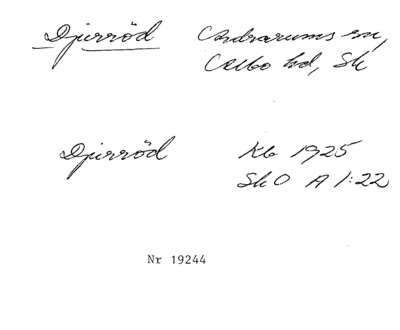 Djurröd Andrarums sn,
Albo hd, Sk
Djurröd Kb 1925
Sk O A 1:22
Nr 19244